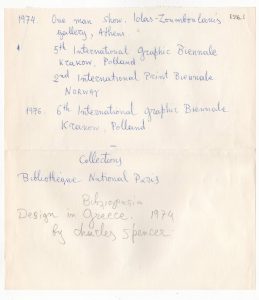 1974 One man show. Iolas-Zoumboulakis
gallery, Athens
5th International Graphic Biennale
Krakow, Polland
2nd International Print Biennale
Norway
1976. 6th International graphic Biennale
Krakow, Polland
Collections
Bibliothèque National Paris
Design in Greece. 1974
by Charles Spencer